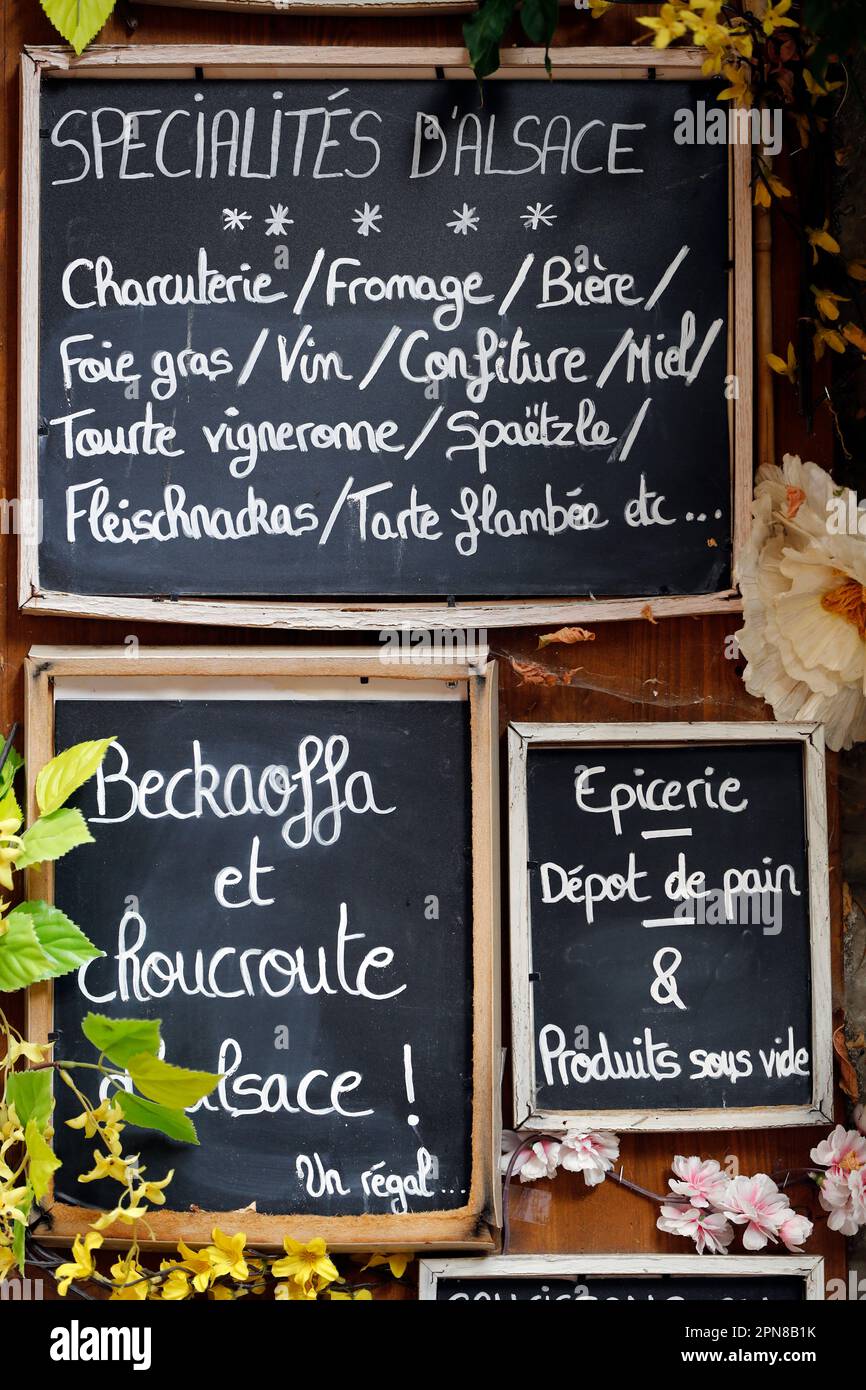 SPECIALITÉS D'ALSACE
* * * * *
Charcuterie / Fromage / Bière /
Foie gras / Vin / Confiture / Miel /
Tourte vigneronne / Spaëtzle /
Fleischnackas / Tarte flambée etc...
Beckaoffa
et
choucroute
d'alsace !
Un régal...
Epicerie
—
Dépôt de pain
—
&
Produits sous vide
alamy
Image ID: 2PN8B1K
www.alamy.com